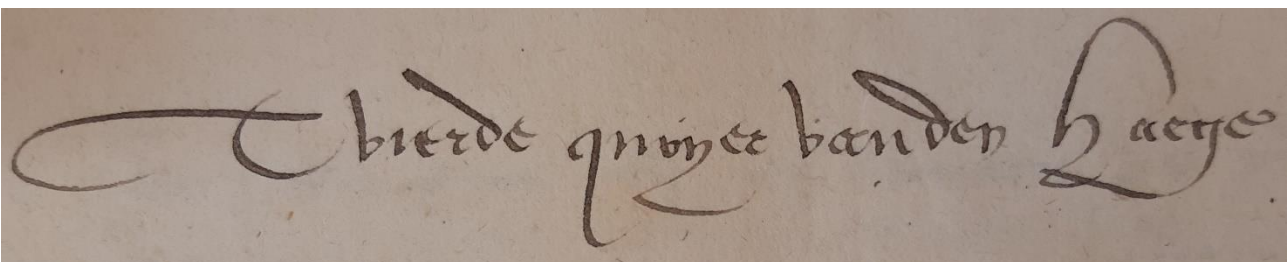 Tvierde quoyer vanden Haege